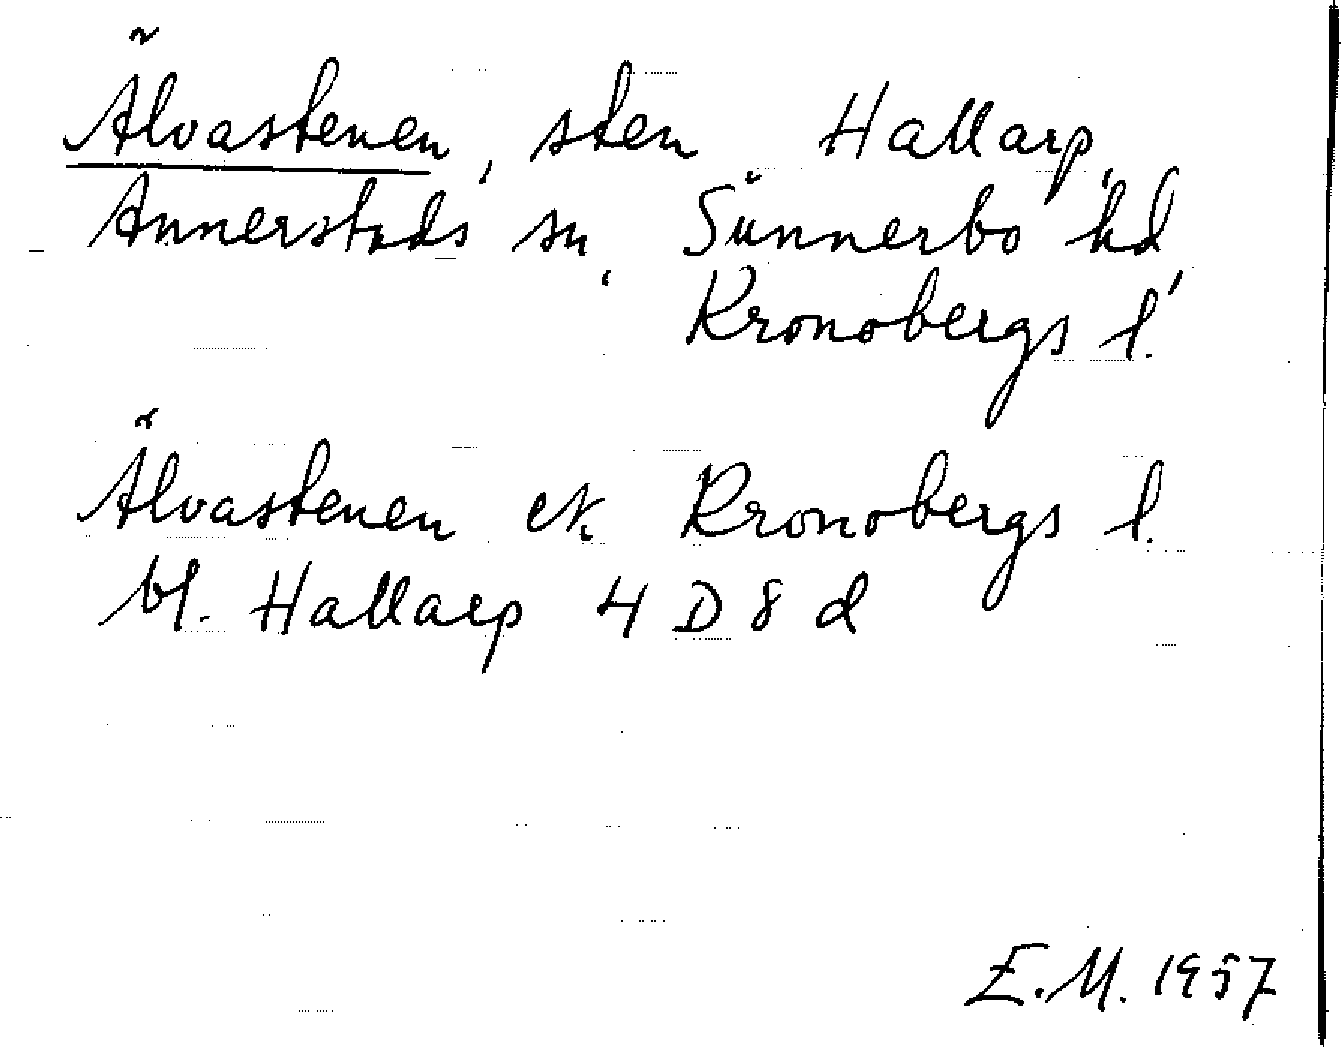 Älvastenen, sten, Hallarp,
Annerstads sn, Sunnerbo hd,
Kronobergs l.
Älvastenen ek Kronobergs l.
bl. Hallarp 4 D 8 d
E.M. 1957